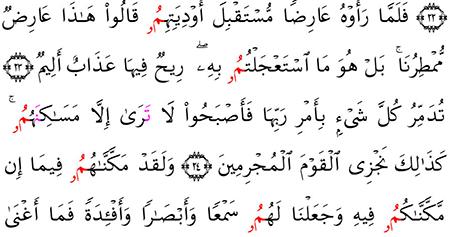 ﴿٢٢﴾ فَلَمَّا رَأَوْهُ عَارِضًا مُّسْتَقْبِلَ أَوْدِيَتِهِمُۥ قَالُوا۟ هَـٰذَا عَارِضٌ
مُّمْطِرُنَا ۚ بَلْ هُوَ مَا ٱسْتَعْجَلْتُمُۥ بِهِۦ ۖ رِيحٌ فِيهَا عَذَابٌ أَلِيمٌ ﴿٢٣﴾
تُدَمِّرُ كُلَّ شَىْءٍۭ بِأَمْرِ رَبِّهَا فَأَصْبَحُوا۟ لَا تَرَىٰ إِلَّا مَسَـٰكِنَهُمُۥ ۚ
كَذَٰلِكَ نَجْزِى ٱلْقَوْمَ ٱلْمُجْرِمِينَ ﴿٢٤﴾ وَلَقَدْ مَكَّنَّـٰهُمُۥ فِيمَا إِن
مَّكَّنَّـٰكُمُۥ فِيهِ وَجَعَلْنَا لَهُمُۥ سَمْعًا وَأَبْصَـٰرًا وَأَفْـِٔدَةً فَمَا أَغْنَىٰ